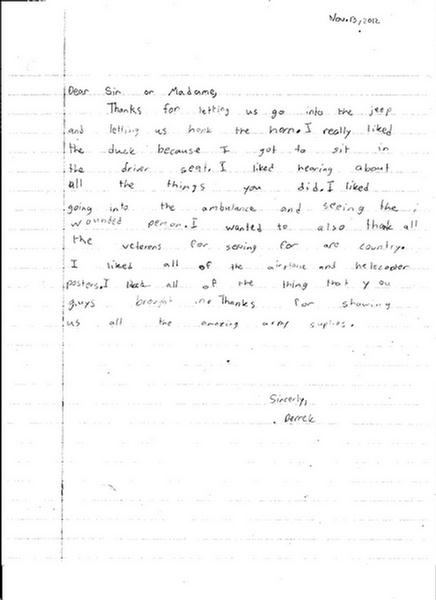 Nov. 13, 2012
Dear Sir or Madame,
Thanks for letting us go into the jeep
and letting us honk the horn. I really liked
the duck because I got to sit in
the driver seat. I liked hearing about
all the things you did. I liked
going into the ambulance and seeing the
wounded person. I wanted to also thank all
the veterens for seving for are country.
I liked all of the airplane and helecopter
posters. I liked all of the thing that you
guys brought in. Thanks for showing
us all the amazing army suplies.
Sincerly,
Derrek